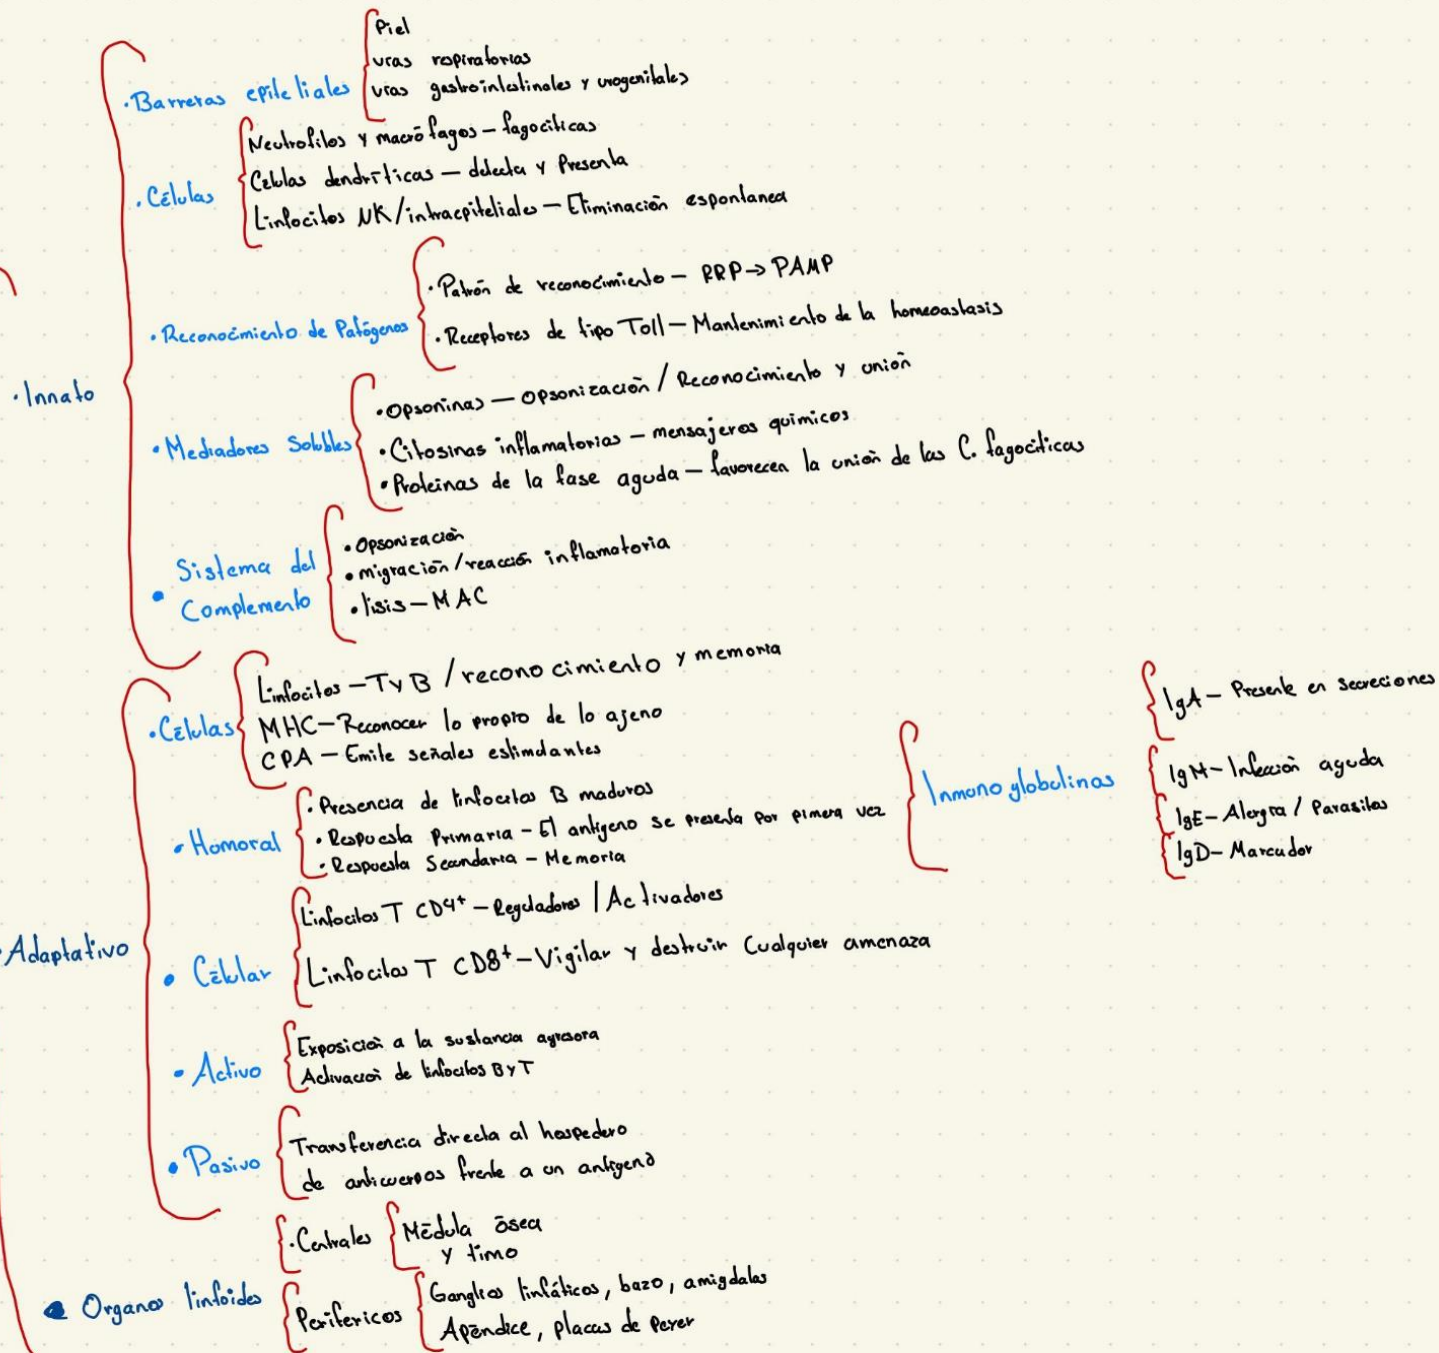 Piel
vías respiratorias
·Barreras epiteliales
vías gastrointestinales y urogenitales
Neutrofilos y macrófagos – fagocíticas
·Células
Células dendríticas – detecta y Presenta
Linfocitos NK/intraepiteliales – Eliminación espontanea
·Innato
·Reconocimiento de Patógenos
·Patrón de reconocimiento – RRP→PAMP
·Receptores de tipo Toll – Mantenimiento de la homeoastasis
·Mediadores Solubles
·Opsoninas – Opsonización / Reconocimiento y unión
·Citosinas inflamatorias – mensajeros químicos
·Proteínas de la fase aguda – favorecen la unión de las C. fagocíticas
·Sistema del
Complemento
·Opsonización
·migración/reacción inflamatoria
·lisis – MAC
·Adaptativo
·Células
Linfocitos – T y B / reconocimiento y memoria
MHC – Reconocer lo propio de lo ajeno
CPA – Emite señales estimulantes
·Homoral
·Presencia de linfocitos B maduros
·Respuesta Primaria – El antígeno se presenta por pimera vez
·Respuesta Secundaria – Memoria
Inmunoglobulinas
IgA – Presente en secreciones
IgM – Infección aguda
IgE – Alergia / Parasitos
IgD – Marcador
·Célular
Linfocitos T CD4+ – Reguladores / Activadores
Linfocitos T CD8+ – Vigilar y destruir Cualquier amenaza
·Activo
Exposición a la sustancia agresora
Activación de linfocitos B y T
·Pasivo
Transferencia directa al hospedero
de anticuerpos frente a un antígeno
·Organos linfoides
·Centrales
Médula ósea
y timo
Perifericos
Ganglios linfáticos, bazo, amigdalas
Apéndice, placas de Peyer